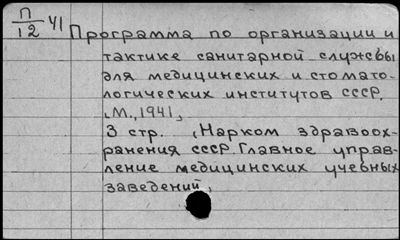 П/12 41
Программа по организации и
тактике санитарной службы
для медицинских и стомато-
логических институтов СССР.
М., 1941,
3 стр. (Нарком здравоох-
ранения СССР. Главное управ-
ление медицинских учебных
заведений)